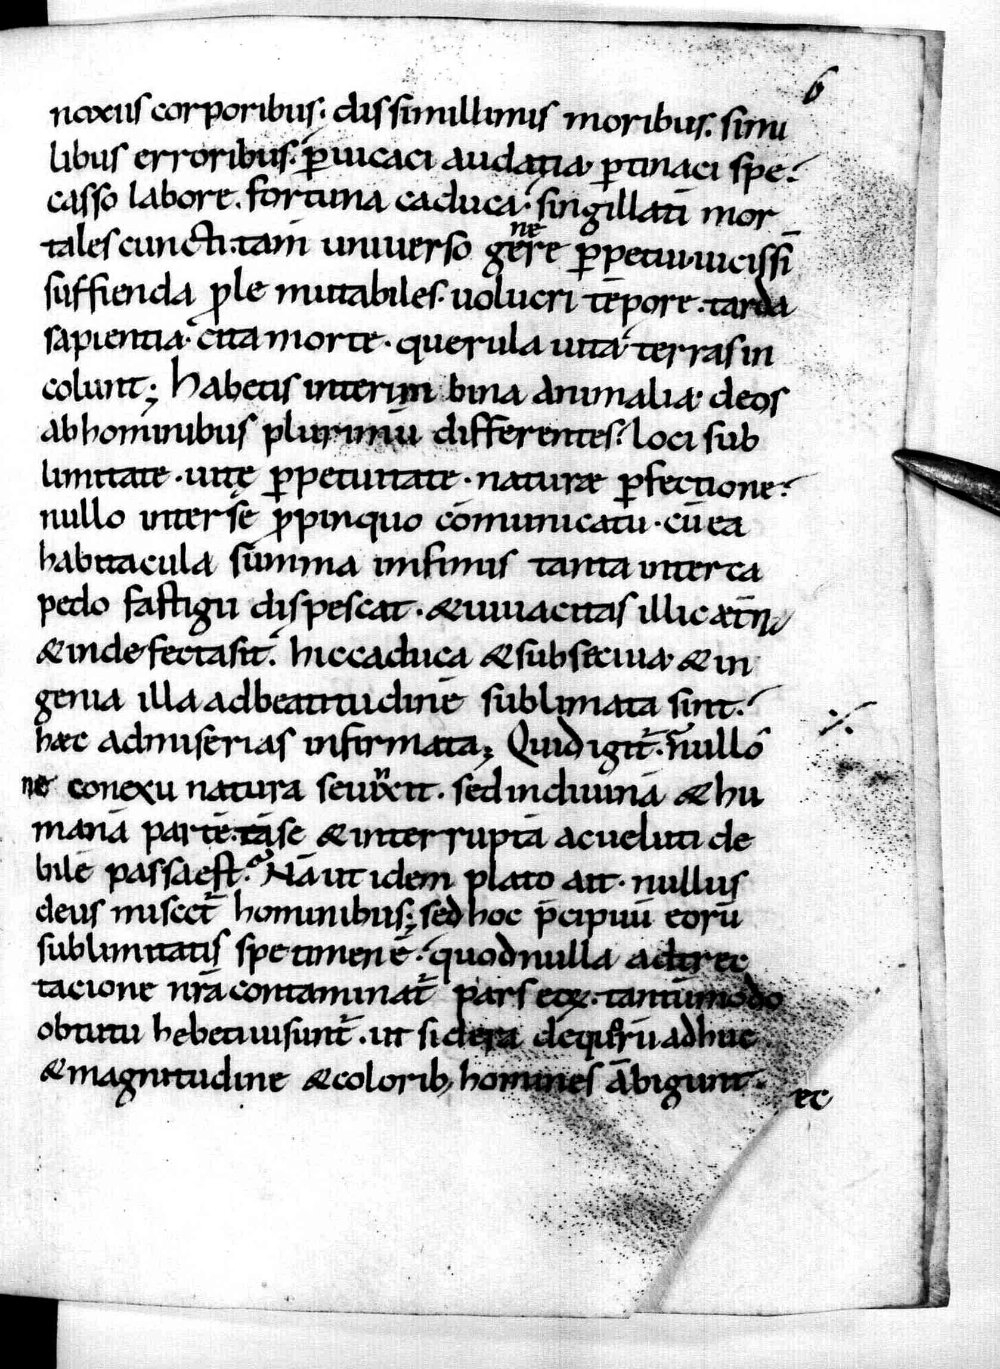 6
noxiis corporibus. dissimillimis moribus. simi
libus erroribus. puicaci audatia. ptinaci spe.
casso labore. fortuna caduca. singillatī mor
tales cuncti. tam universo gene re ppetui. uicissī
sufficienda ple mutabiles. uolucri tēpore. tarda
sapientia. cita morte. querula uita. terras in
colunt; habetis interim bina animalia. deos
ab hominibus plurimū differentes. loci sub
limitate. uitę ppetuitate. naturæ pfectione.
nullo inter se ppinquo cōmunicatu. cū ea
habitacula summa infimis tanta interca
pedo fastigii dispescat. & uiuacitas illic æt̄na
& indefecta sit. hic caduca & subseciua. & in
genia illa ad beatitudinē sublimata sint.
hæc ad miserias infirmata; Quid igit̄. nullo
ne conexu natura se uinxit. sed in diuinā & hu
manā partē se & interruptā ac ueluti de
bilē passa est. Nā ut idem plato ait. nullus
deus miscet̄ hominibus; sed hoc p̄cipuū eorū
sublimitatis specimen ē. quod nulla adtrec
tacione nr̄a contaminat̄. pars eoꝝ. tantūmodo
obtutu hebeti uisunt̄. ut sidera de quiƀ adhuc
& magnitudine & colorib; homines ābigunt.